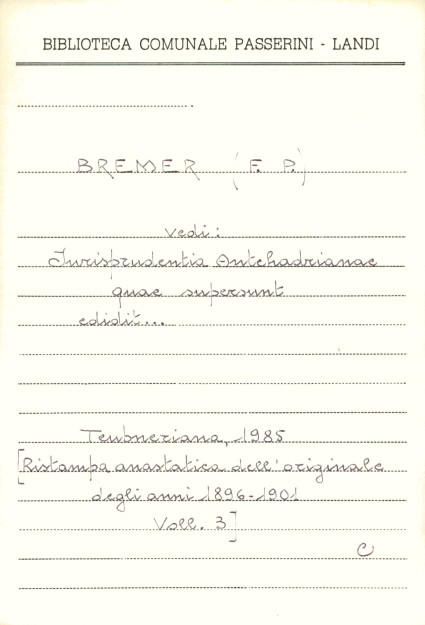 BIBLIOTECA COMUNALE PASSERINI - LANDI
BREMER (F. P.)
vedi:
Iurisprudentia Antehadrianae
quae supersunt
edidit...
Teubneriana, 1985
[Ristampa anastatica dell'originale
degli anni 1896-1901
Voll. 3]
C